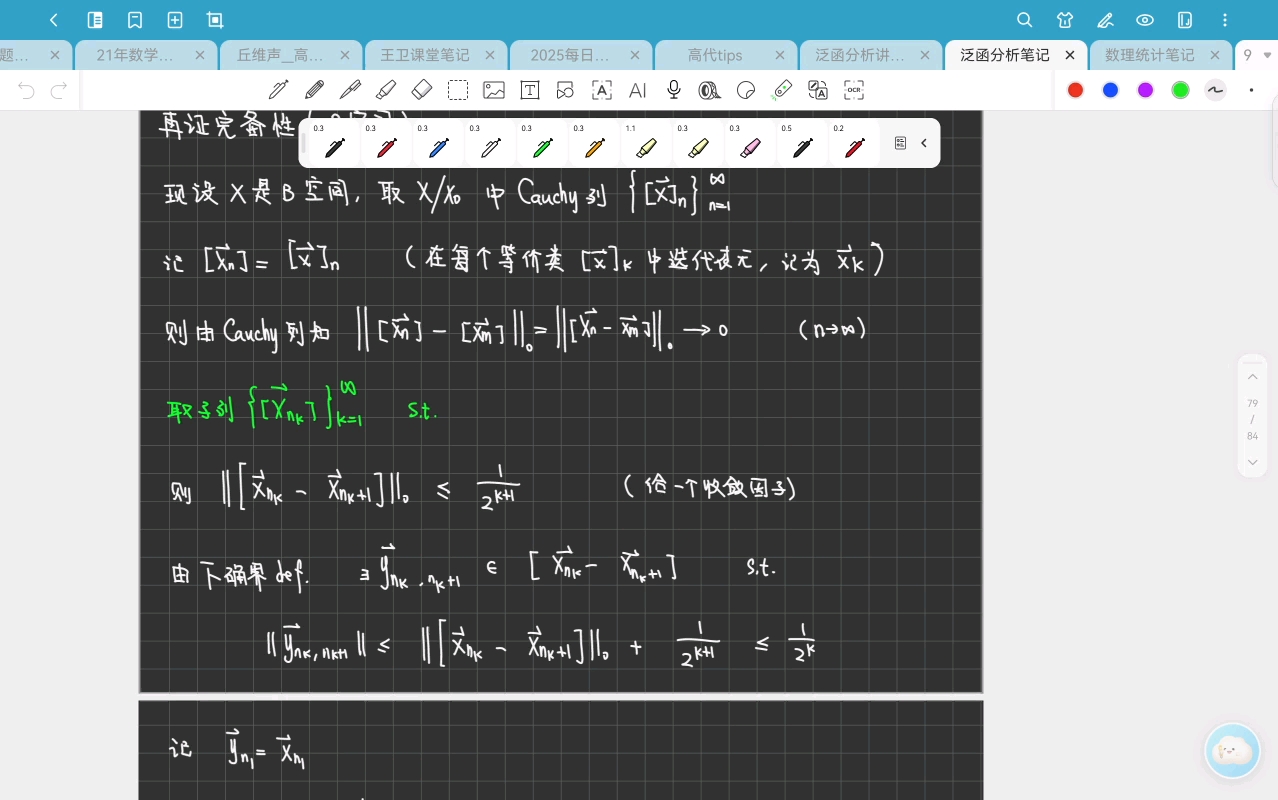 题... 21年数学... 丘维声__高... 王卫课堂笔记 2025每日... 高代tips 泛函分析讲... 泛函分析笔记 数理统计笔记 9
AI OCR
0.3 0.3 0.3 0.3 0.3 0.3 1.1 0.3 0.3 0.5 0.2
再证完备性
现设 X 是 B 空间, 取 X/X₀ 中 Cauchy 列 {[x⃗]ₙ}ₙ₌₁^∞
记 [x⃗ₙ] = [x⃗]ₙ (在每个等价类 [x⃗]ₖ 中选代表元, 记为 x⃗ₖ)
则由 Cauchy 列知 ‖[x⃗ₙ] − [x⃗ₘ]‖₀ = ‖[x⃗ₙ − x⃗ₘ]‖₀ → 0 (n→∞)
取子列 {[x⃗_{n_k}]}_{k=1}^∞ s.t.
则 ‖[x⃗_{n_k} − x⃗_{n_k+1}]‖₀ ≤ 1/2^{k+1} (给一个收敛因子)
由下确界 def. ∃ y⃗_{n_k, n_k+1} ∈ [x⃗_{n_k} − x⃗_{n_k+1}] s.t.
‖y⃗_{n_k, n_k+1}‖ ≤ ‖[x⃗_{n_k} − x⃗_{n_k+1}]‖₀ + 1/2^{k+1} ≤ 1/2^k
记 y⃗_{n₁} = x⃗_{n₁}
79
/
84